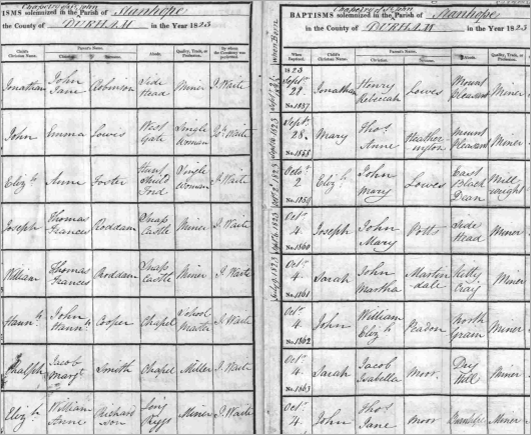 Chapelry of St John
ISMS solemnized in the Parish of Stanhope
the County of DURHAM in the Year 1823
Child's Christian Name. Parent's Name. Christian. Surname. Abode. Quality, Trade, or Profession. By whom the Ceremony was performed.
Jonathan John Jane Robinson Side Head Miner J. Waite
John Emma Lowes West Gate Single Woman Js. Waite
Eliz.h Anne Foster Shiel Ford Single Woman J. Waite
Joseph Thomas Frances Roddam Snape Castle Miner J. Waite
William Thomas Frances Roddam Snape Castle Miner J. Waite
Hann.h John Hann.h Cooper Chapel School Master J. Waite
Jacob Marg.t Smith Chapel Miller J. Waite
Eliz.h William Anne Richardson Riggs Miner J. Waite
Chapelry of St John
BAPTISMS solemnized in the Parish of Stanhope
in the County of DURHAM in the Year 1823
when Born
When Baptized. Child's Christian Name. Parent's Name. Christian. Surname. Abode. Quality, Trade, or Profession.
1823
Sept.r 28. No. 1857 Jonathan Henry Rebecah Lowes Mount Pleasant Miner
Sept.r 28. No. 1858 Mary Tho.s Anne Heatherington Mount Pleasant Miner
Octo.r 2 No. 1859 Eliz.h John Mary Lowes East Black Dean Millwright
Oct.r 4. No. 1860 Joseph John Mary Pott Side Head Miner
Oct.r 4. No. 1861 Sarah John Martha Martindale Kitty Craig Miner
Oct.r 4. No. 1862 John William Eliz.h Peadon North Grain Miner
Oct.r 4. No. 1863 Sarah Jacob Isabella Moor Dry Hill Miner
Oct.r 4. John Tho.s Jane Moor Miner